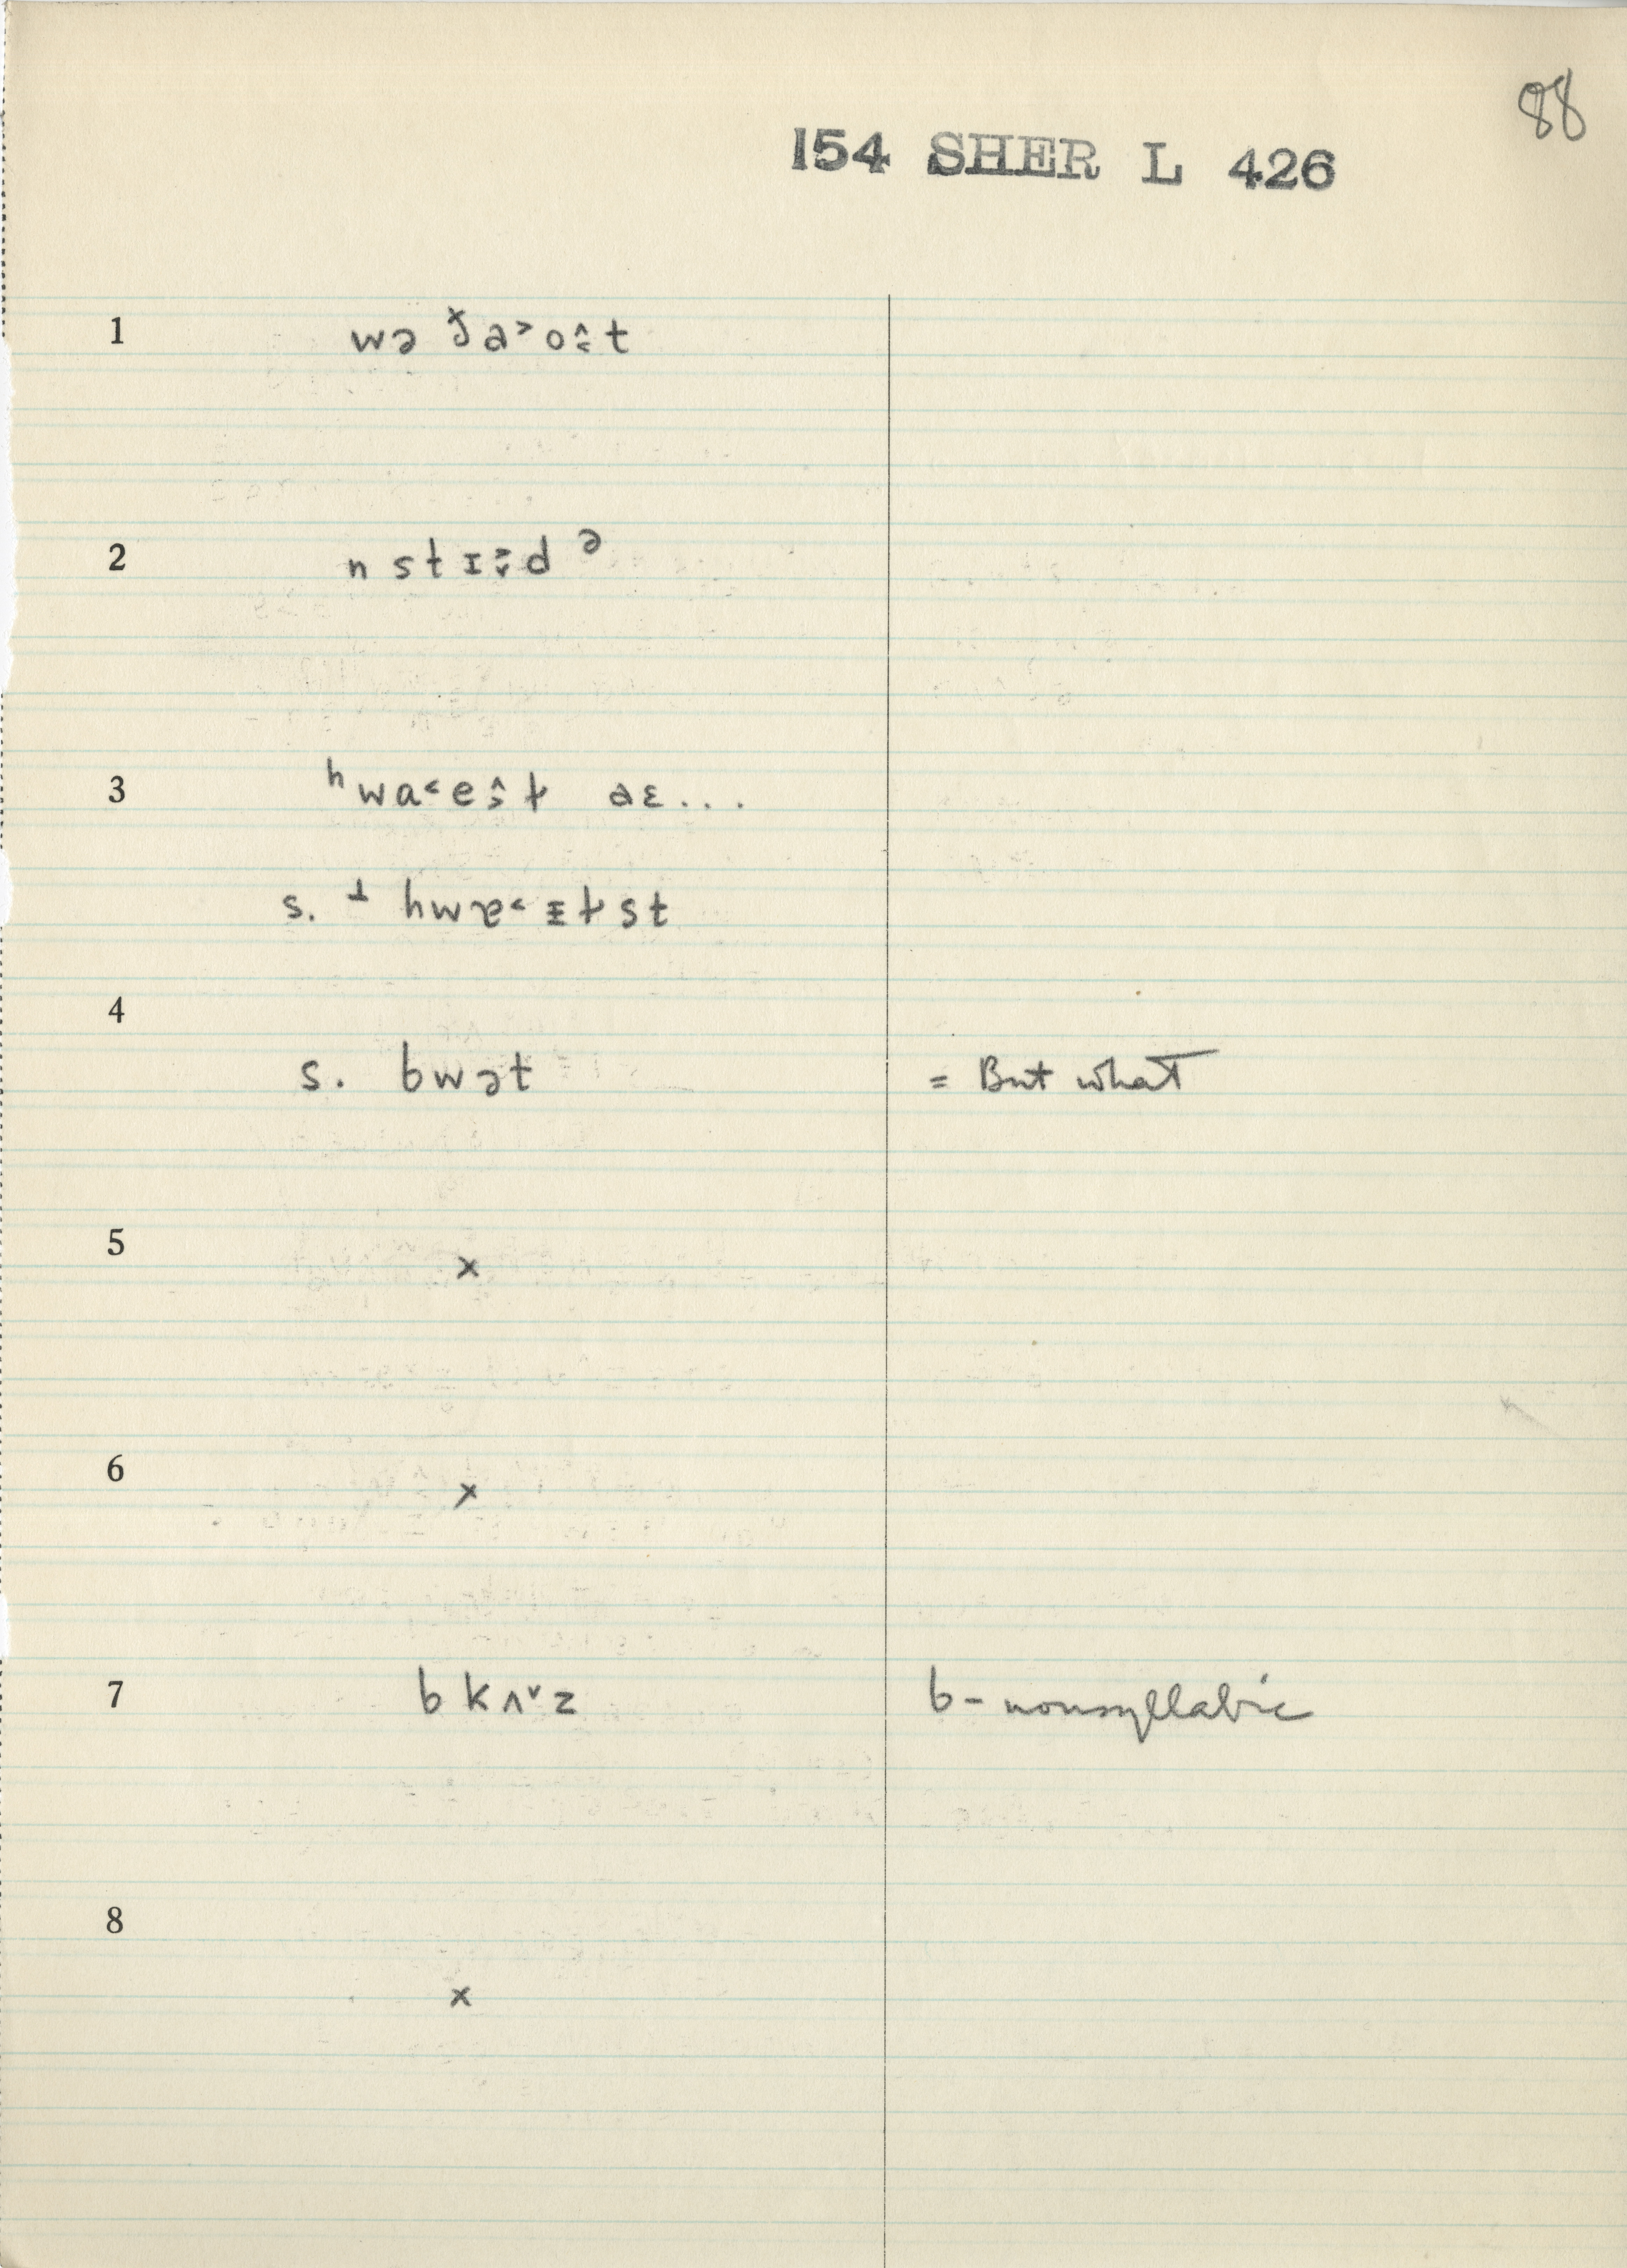 88
154 SHER L 426
1 wə ɉa˃o˄˂t
2 n stɪ˃˅d ə
3 ʰwa˂es̭ɫ aɛ...
s. ꓕ hwɐ˂ᵻɫst
4
s. bwət = But what
5 ×
6 ×
7 b kʌ˅z b-nonsyllabic
8
×